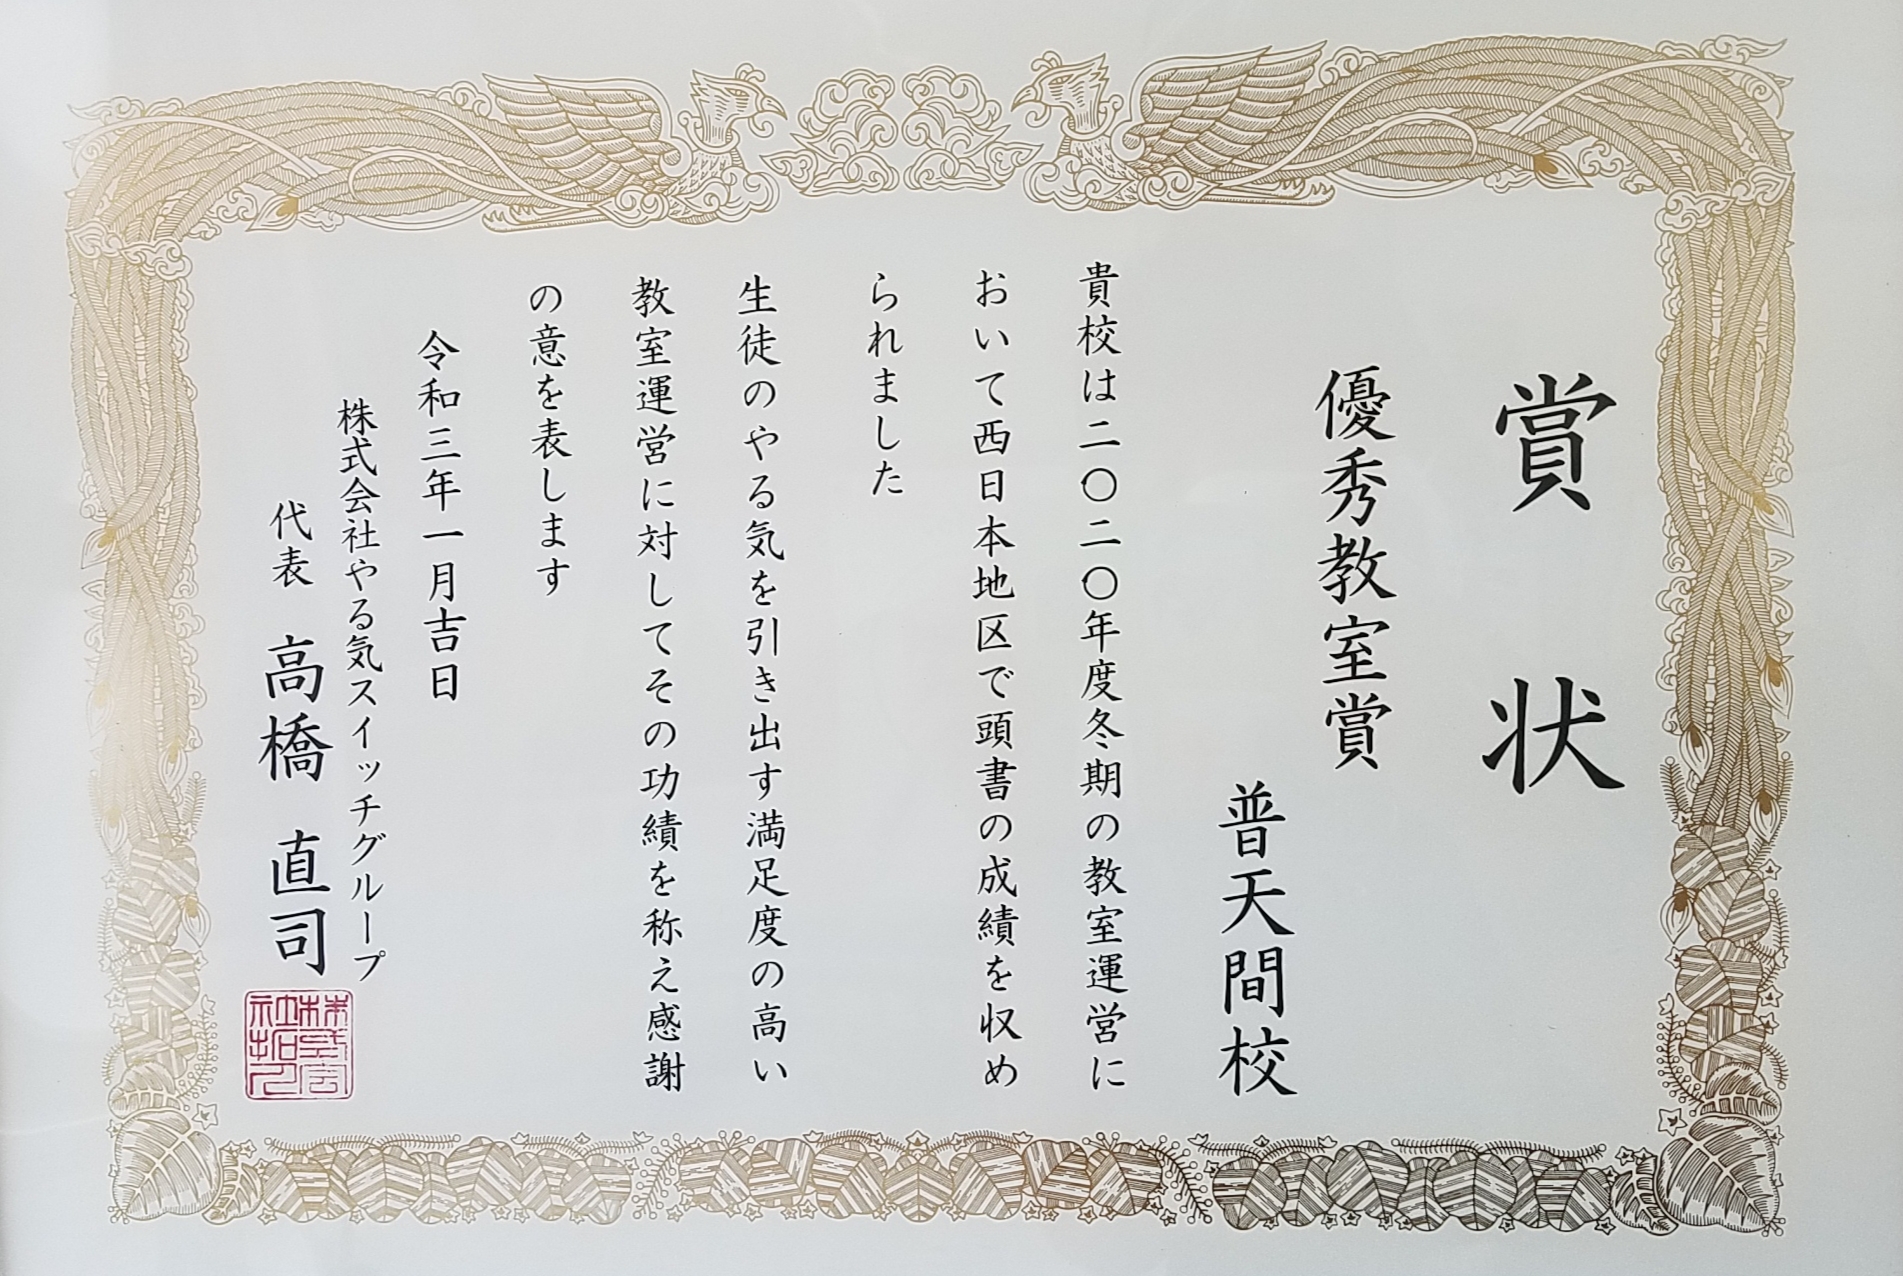 賞状
優秀教室賞
普天間校
貴校は二〇二〇年度冬期の教室運営に
おいて西日本地区で頭書の成績を収め
られました
生徒のやる気を引き出す満足度の高い
教室運営に対してその功績を称え感謝
の意を表します
令和三年一月吉日
株式会社やる気スイッチグループ
代表 高橋 直司